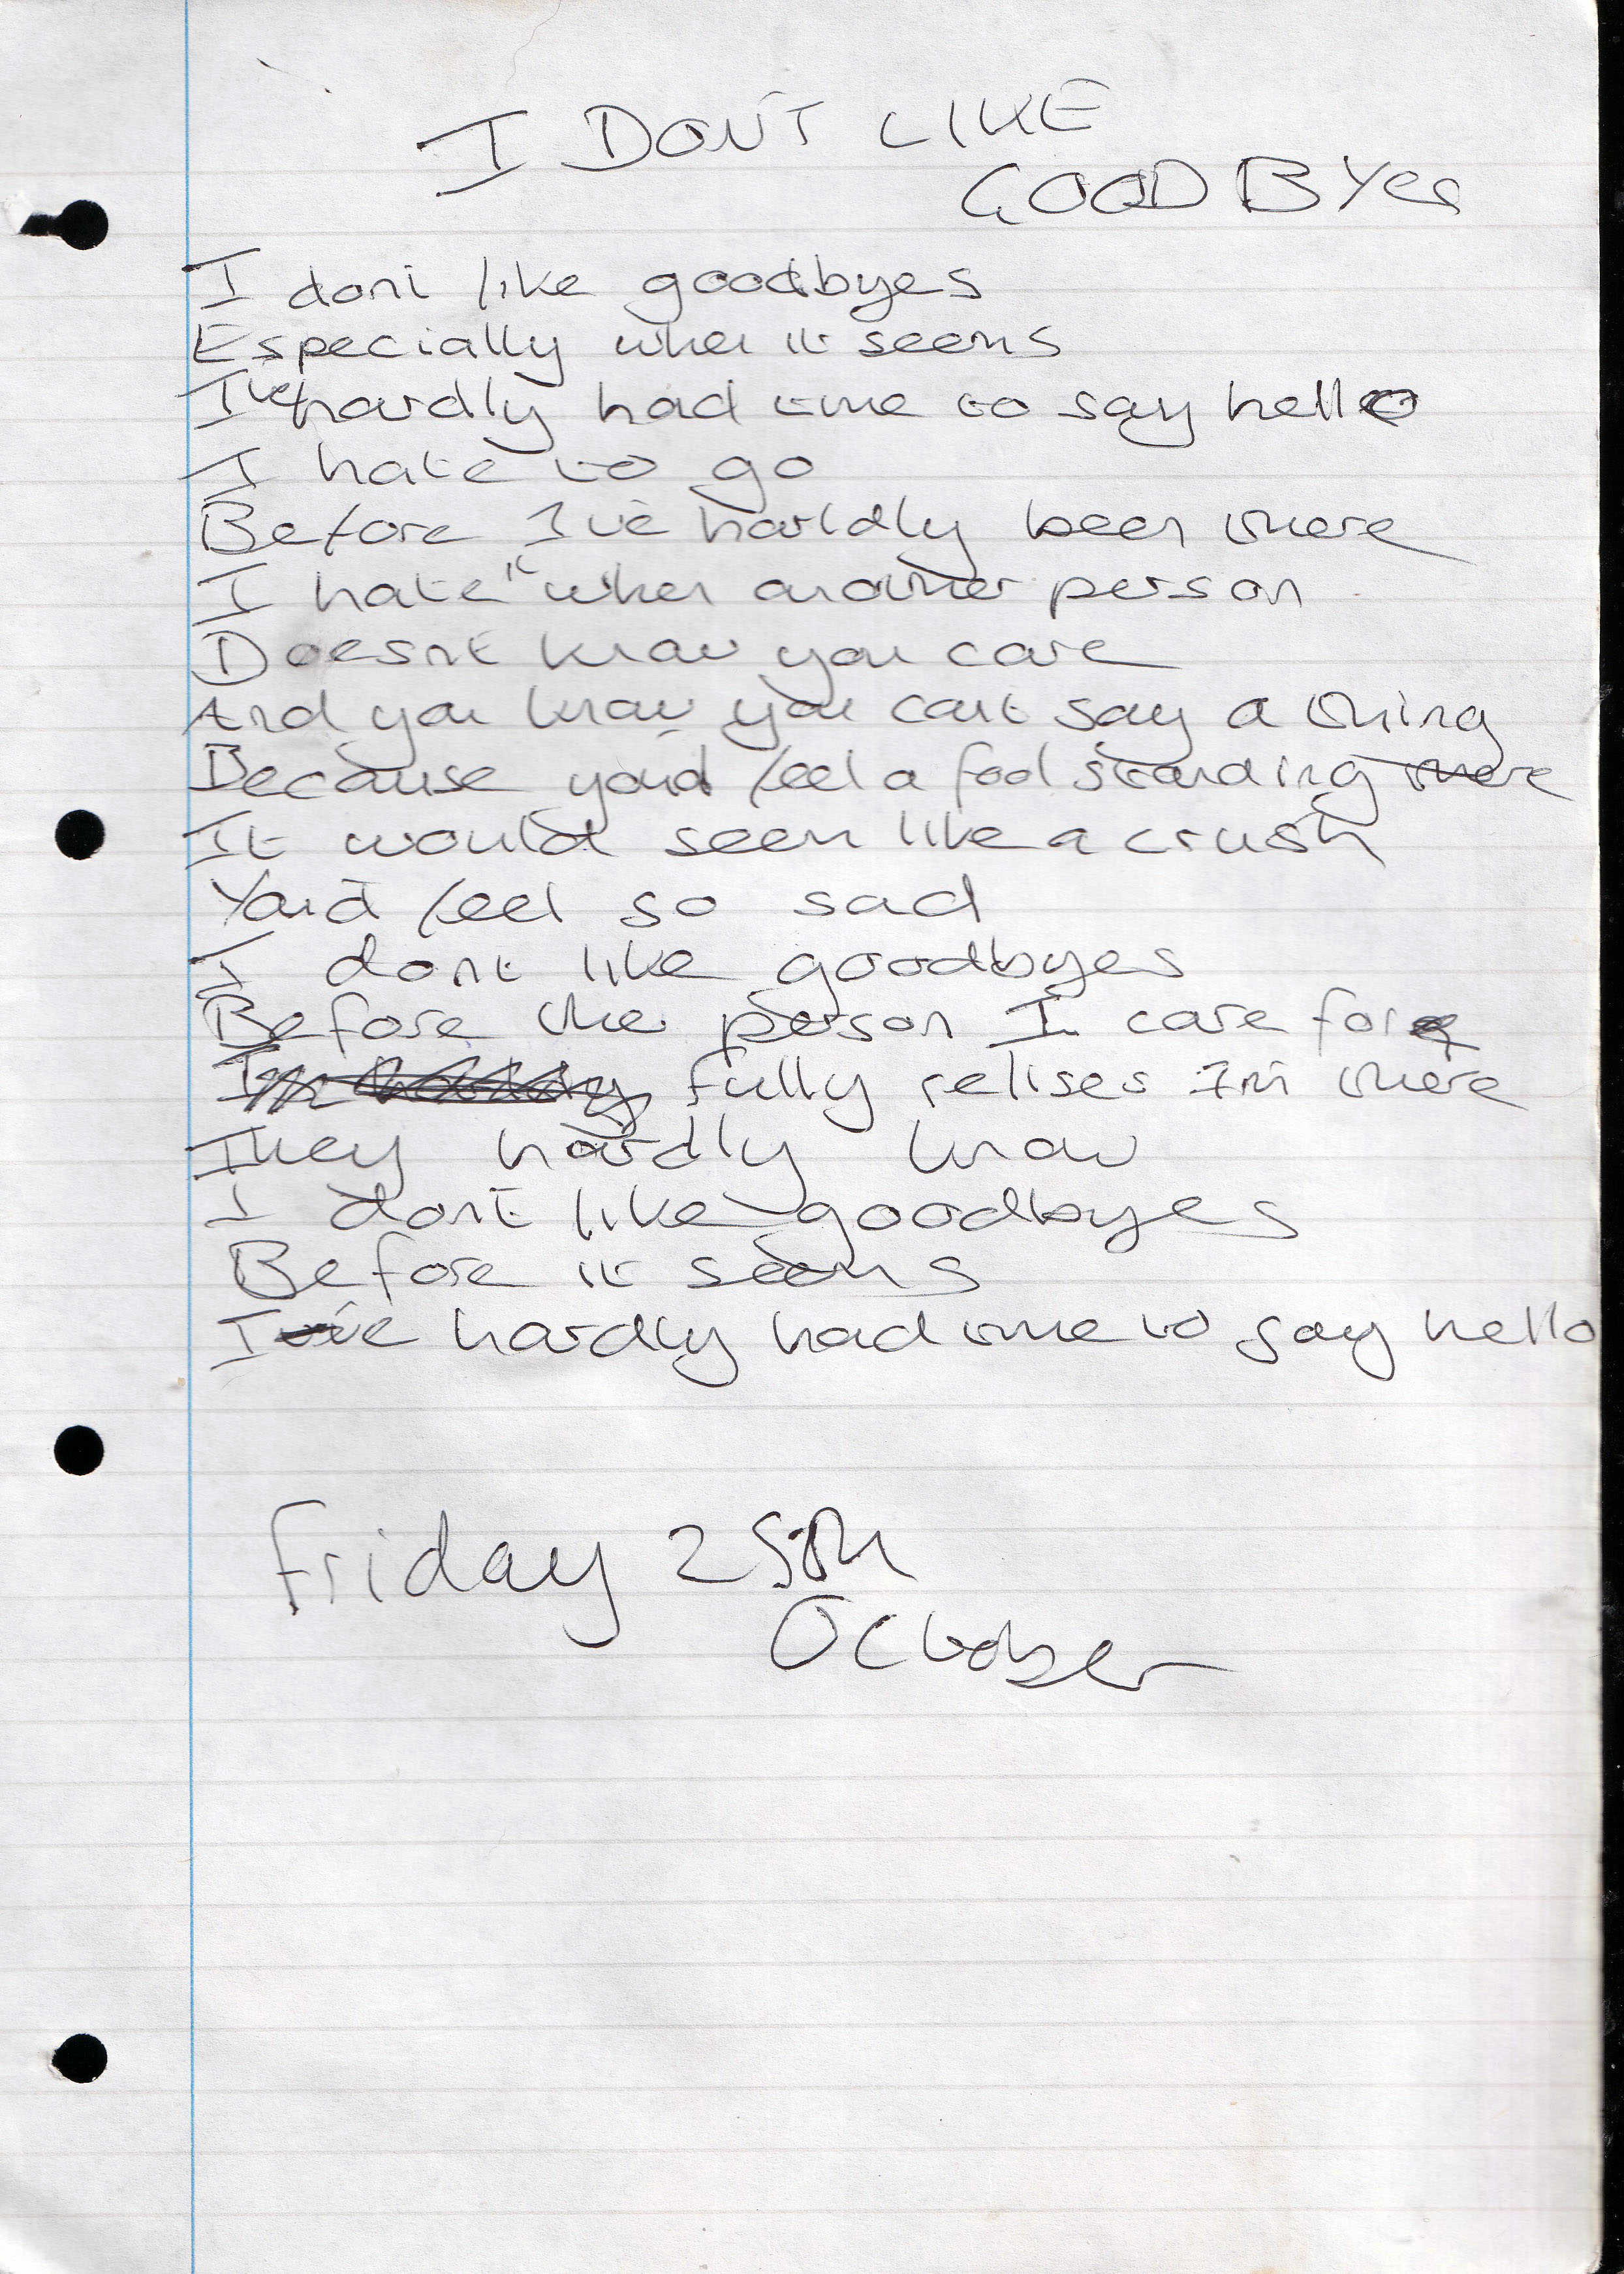 I DON'T LIKE
GOODBYes
I don't like goodbyes
Especially when it seems
I've hardly had time to say hello
I hate to go
Before I've harldly been there
I hate it when another person
Doesnt know you care
And you know you cant say a thing
Because you'd feel a fool standing there
It would seem like a crush
You'd feel so sad
I dont like goodbyes
Before the person I care for
fully relises I'm there
They hardly know
I don't like goodbyes
Before it seems
I've hardly had time to say hello
Friday 25th
October